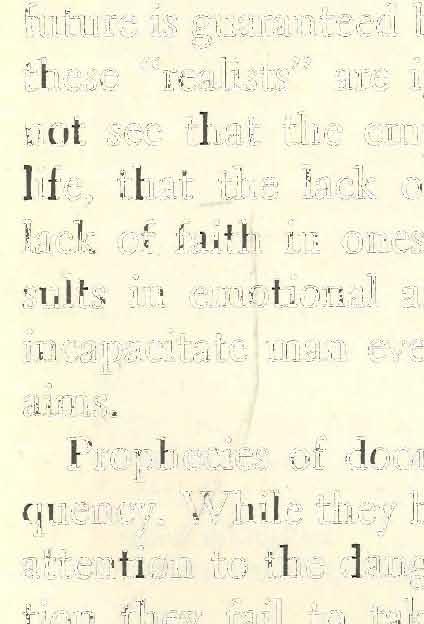 future is guaranteed
these "realists" are
not see that the em
life, that the lack o
lack of faith in ones
sults in emotional a
incapacitate man eve
aims.
Prophecies of doo
quency. While they h
attention to the dang
tion they fail to tak